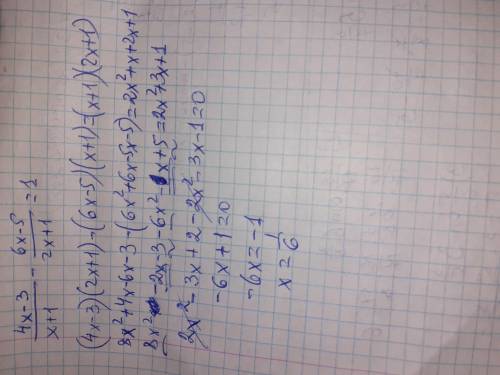 (4x-3)/(x+1) - (6x-5)/(2x+1) = 1
(4x-3)(2x+1)-(6x-5)(x+1)=(x+1)(2x+1)
8x²+4x-6x-3-(6x²+6x-5x-5)=2x²+x+2x+1
8x²-2x-3-6x²-x+5=2x²+3x+1
2x²-3x+2-2x²-3x-1=0
-6x+1=0
-6x=-1
x=1/6